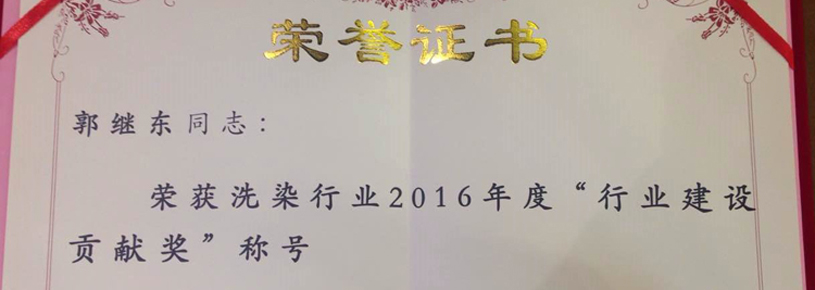 荣誉证书
郭继东同志：
荣获洗染行业2016年度“行业建设
贡献奖”称号